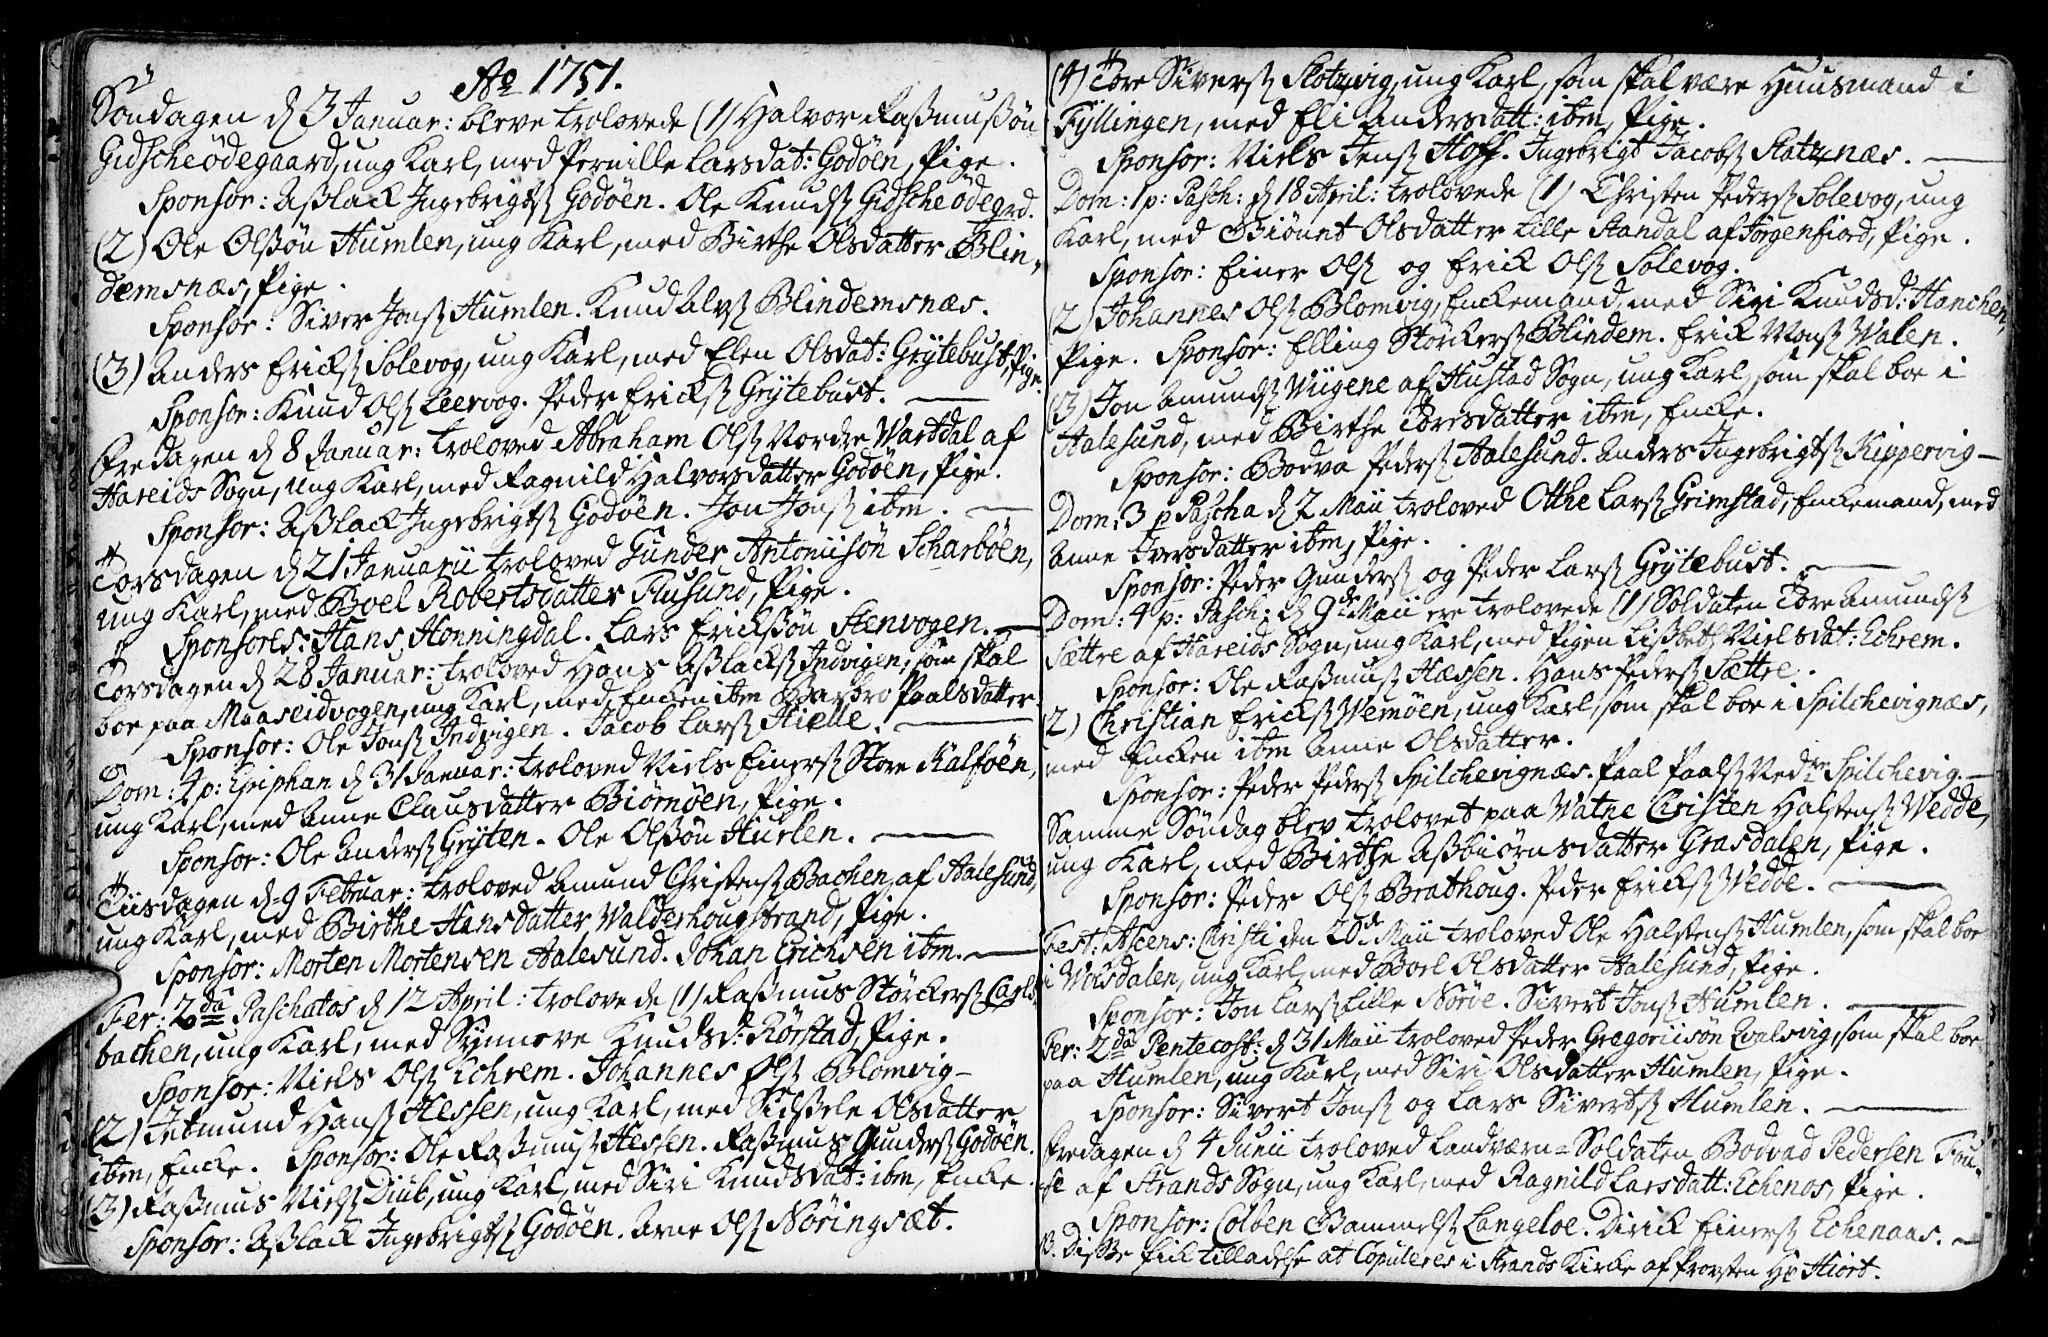 Ao 1751.
Söndagen d 3 Januar: bleve trolovede (1) Halvor Rasmussön
Gidscheödegaard, ung Karl, med Pernille Larsdat: Godöen, Pige.
Sponsor: Aslack Ingebrigts Godöen. Ole Knuds Gidscheödegrd.
(2) Ole Olssön Humlen, ung Karl, med Birthe Olsdatter Blin-
demsnæs, Pige.
Sponsor: Siver Jons Humlen. Knud Alvs Blindemsnæs.
(3) Anders Ericks Solevog, ung Karl, med Elen Olsdat: Grÿtebust, Pige.
Sponsor: Knud Ols Leervog. Peder Ericks Grÿtebust.
Fredagen d 8 Januar: troloved Abraham Ols Nordre Wartdal af
Hareids Sogn, ung Karl, med Ragnild Halvorsdatter Godöen, Pige.
Sponsor: Aslack Ingebrigts Godöen. Jon Jons ibm.
Torsdagen d 21 Januarii troloved Gunder Antoniisön Scharböen,
ung Karl, med Boel Robertsdatter Flusund, Pige.
Sponsores: Hans Honningdal. Lars Erickssön Stenvogen.
Torsdagen d 28 Januar: troloved Hans Aslacks Indvigen, som skal
boe paa Maaseidvogen, ung Karl, med Encken ibm Barbro Paalsdatter
Sponsor: Ole Jons Indvigen. Jacob Lars Hielle.
Dom: 4 p: Epiphan d 31 Januar: troloved Niels Einers Store Kalföen,
ung Karl, med Anne Clausdatter Biörnöen, Pige.
Sponsor: Ole Anders Grÿten. Ole Olssön Hurlen.
Tiisdagen d. 9 Februar: troloved Amund Christens Bachen af Aalesund,
ung Karl, med Birthe Hansdatter Walderhougstrand, Pige.
Sponsor: Morten Mortensen Aalesund. Johan Erichsen ibm.
Fer: 2da Paschatos d 12 April: trolovede (1) Rasmus Störckers Carls-
bachen, ung Karl, med Sÿnnove Knudsd: Rörstad, Pige.
Sponsor: Niels Ols Echrem. Johannes Ols Blomvig
(2) Jetmund Hans Hessen, ung Karl, med Sidsele Olsdatter
ibm, Encke. Sponsor: Ole Rasmuss Hessen. Rasmus Gunders Godöen.
(3) Rasmus Niels Diub, ung Karl, med Siri Knudsdat: ibm, Encke.
Sponsor: Aslack Ingebrigts Godöen. Arne Ols Nöringsæt.
(4) Tore Sivers Slotzvig, ung Karl, som skal være Huusmand i
Fÿllingen, med Eli Andersdatt: ibm, Pige.
Sponsor: Niels Jens Hoff. Ingebrigt Jacobs Slatznæs.
Dom: 1 p: Pasch: d 18 April: trolovede (1) Christen Peders Solevog, ung
Karl, med Biöunt Olsdatter Lille Standal af Jörgenfiord, Pige.
Sponsor: Einer Ols og Erick Ols Solevog.
(2) Johannes Ols Blomvig, Enckemand, med Siri Knudsd: Hanchen,
Pige. Sponsor: Elling Störckers Blindem. Erick Mons Walen.
(3) Jon Amunds Wiigene af Hustad Sogn, ung Karl, som skal boe i
Aalesund, med Birthe Toresdatter ibm, Encke.
Sponsor: Bodva Peders Aalesund. Anders Ingebrigts Kippervig
Dom: 3 p Pascha d 2 Maii troloved Otthe Lars Grimstad, Enckemand, med
Anne Iversdatter ibm, Pige.
Sponsor: Peder Gunders og Peder Lars Grÿtebust.
Dom: 4 p: Pasch: d 9de Maii ere trolovede (1) Soldaten Tore Amunds
Sættre af Hareids Sogn, ung Karl, med Pigen Lisbeth Nielsdat: Echrem.
Sponsor: Ole Rasmuss Hæssen. Hans Peders Sættre.
2) Christian Ericks Wemöen, ung Karl, som skal boe i Spilchevignæs,
med Encken ibm Anne Olsdatter.
Sponsor: Peder Peders Spilchevignæs. Paal Paals Nedre Spilchevig.
Samme Söndag blev trolovet paa Watne Christen Halstens Wedde,
ung Karl, med Birthe Asbiörnsdatter Grasdalen, Pige.
Sponsor: Peder Ols Brathoug. Peder Ericks Wedde.
Fest: Ascens: Christi den 20de Maii troloved Ole Halstens Humlen, som skal boe
i Volsdalen, ung Karl, med Boel Olsdatter Aalesund, Pige.
Sponsor: Jon Lars Lille Nörve. Sivert Jons Humlen.
Fer: 2da Pentecost: d 31 Maii troloved Peder Gregoriisön Qvalsvig, som skal boe
paa Humlen, ung Karl, med Siri Olsdatter Humlen, Pige.
Sponsor: Sivert Jons og Lars Siverts Humlen.
Fredagen d 4 Junii troloved Landværn-Soldaten Bodvad Pedersen Fou-
se af Strands Sogn, ung Karl, med Ragnild Larsdatt: Echenos, Pige.
Sponsor: Colben Gammels Langeloe. Dirick Einers Echenaas.
B. Disse fick tilladelse at Copuleres i Strands Kircke af Provsten Hr Hiort.